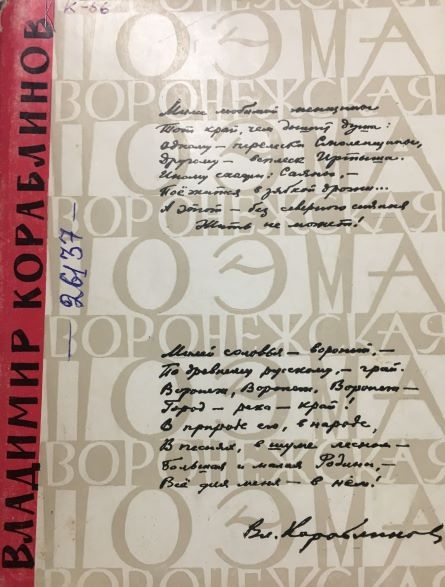 К-66
ВЛАДИМИР КОРАБЛИНОВ
— 26137 —
ПОЭМА
ВОРОНЕЖСКАЯ
ПОЭМА
ВОРОНЕЖСКАЯ
ПОЭМА
ВОРОНЕЖСКАЯ
ПОЭМА
ВОРОНЕЖСКАЯ
ПОЭМА
Милей любимой женщины
Тот край, чем дышит душа:
Одному — перелески Смоленщины,
Другому — всплеск Иртыша.
Иному скажи: Саяны, —
Поёжится в зябкой дрожи...
А этот — без северного сияния
Жить не может!
Милей соловья — вороний, —
По древнему русскому, — грай.
Воронеж, Воронеж, Воронеж —
Город — река — край!
В природе его, в народе,
В песнях, в шуме лесном —
Большая и малая Родины, —
Всё для меня — в нём!
Вл. Кораблинов